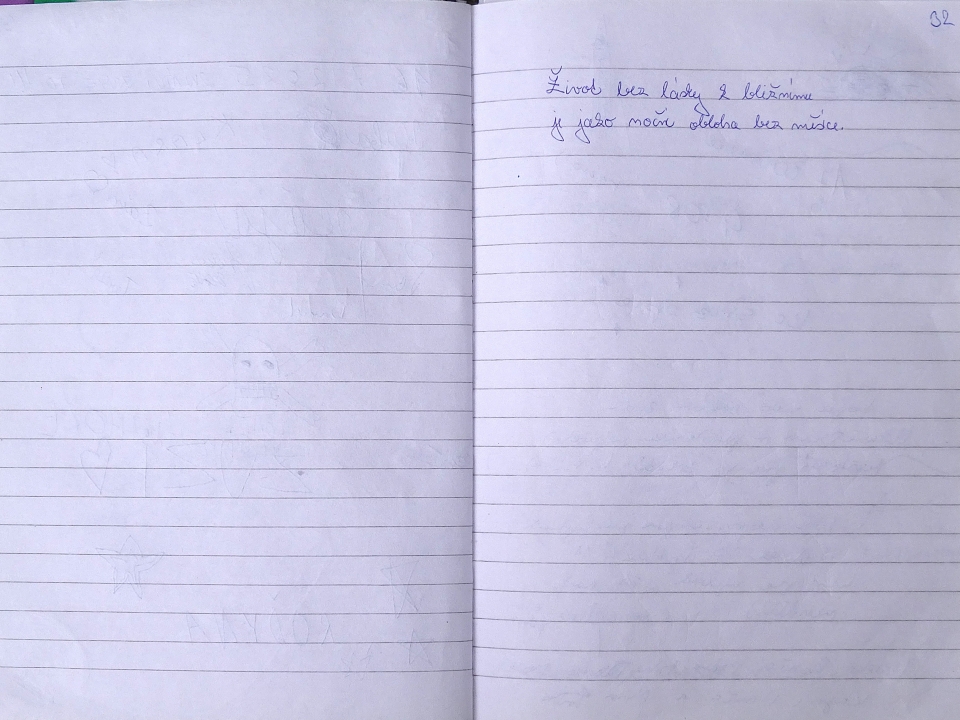 32
Život bez lásky k bližnímu
je jako noční obloha bez měsíce.